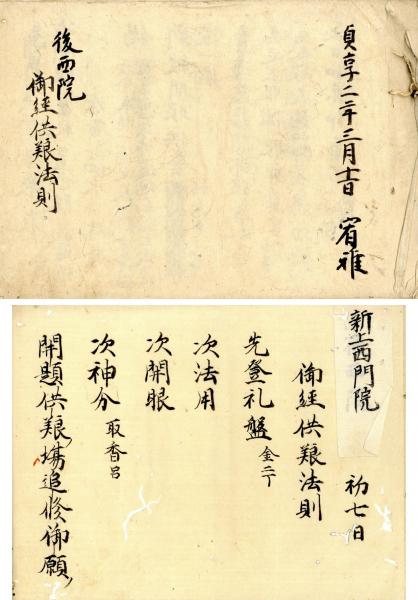 貞享二年三月十一日 宥雅
後西院
御經供養法則
新上西門院 初七日
御經供養法則
先登礼盤 金二丁
次法用
次開眼
次神分 取香呂
開題供養塲追修御願